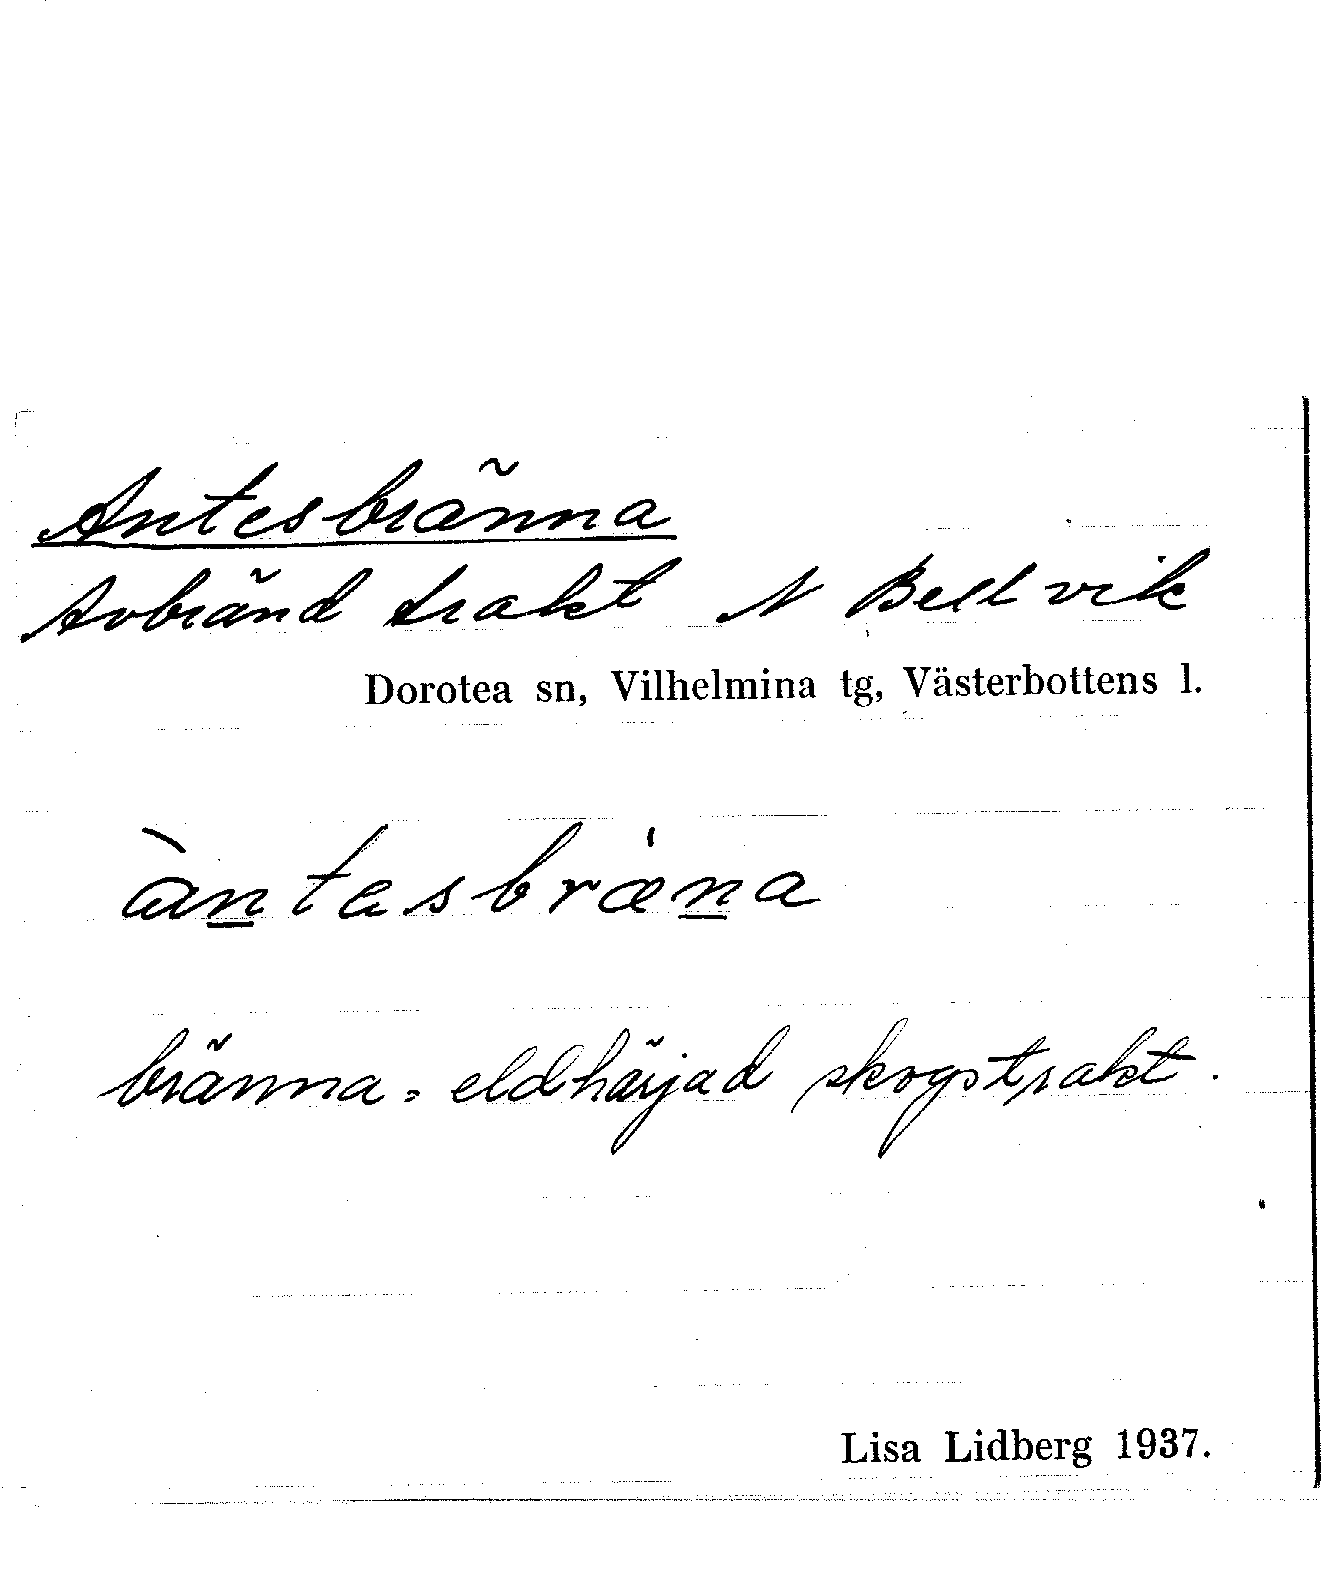 Antesbränna
Avbränd trakt N Bellvik
Dorotea sn, Vilhelmina tg, Västerbottens l.
àn̲tesbræ̍n̲a
bränna = eldhärjad skogstrakt.
Lisa Lidberg 1937.